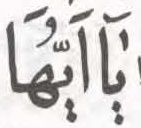 يَٓا اَيُّهَا